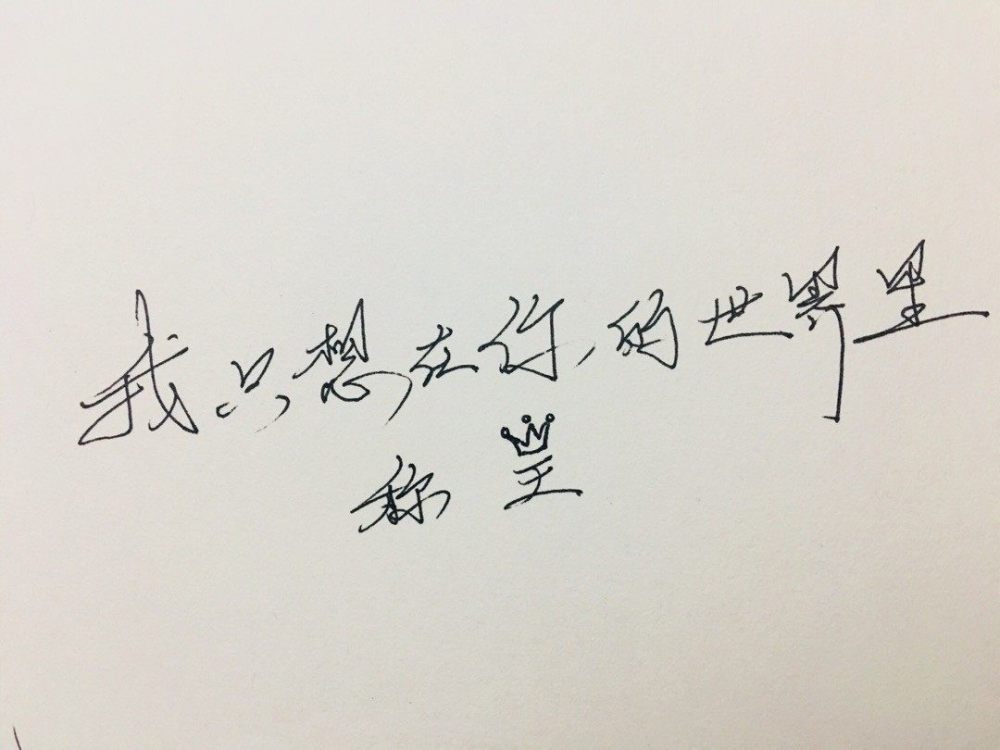 我只想在你的世界里
称王